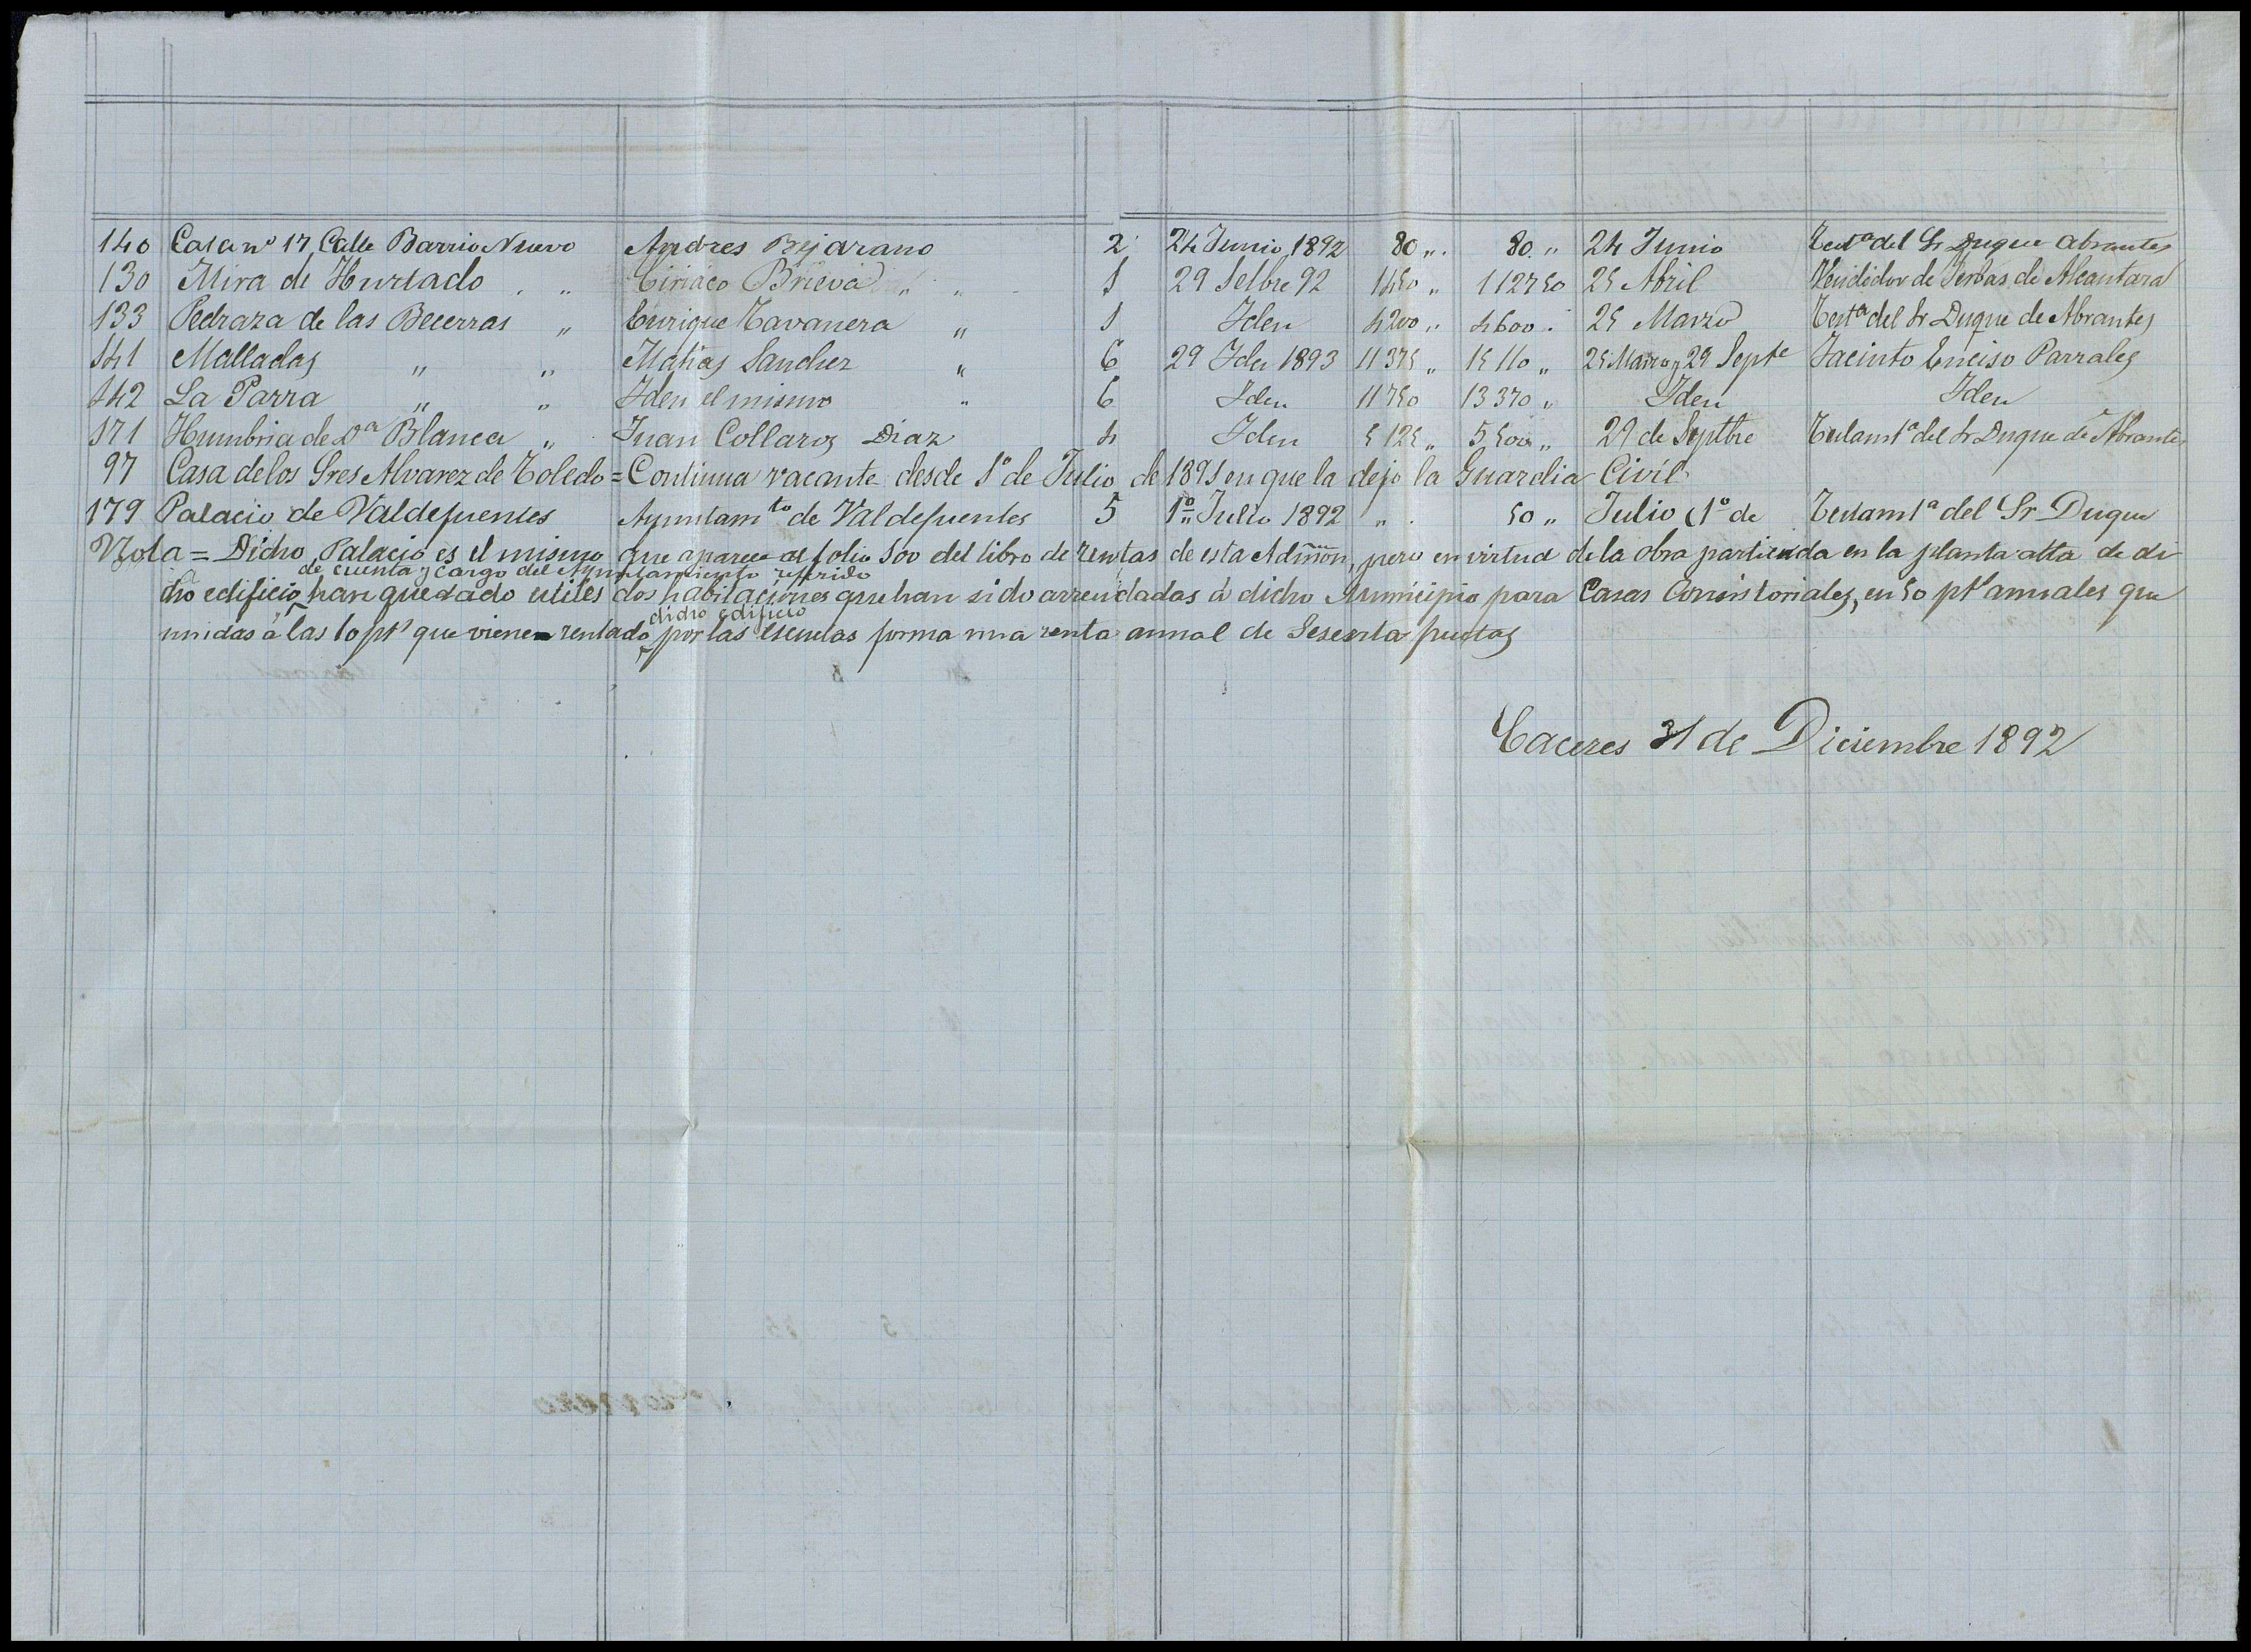 140 Casa nº 17 Calle Barrio Nuevo Andres Bejarano 2 24 Junio 1892 80 „ 80 „ 24 Junio Testª del Sr Duque Abrantes
130 Mira de Hurtado „ Ciriaco Brieva „ „ 1 29 Setbre 92 1450 „ 1127 50 25 Abril Vendedor de Yerbas de Alcantara
133 Pedraza de las Becerras „ Enrique Tavanera „ 1 Iden 4200 „ 4600 „ 25 Marzo Testª del Sr Duque de Abrantes
141 Malladas „ „ Matias Sanchez „ 6 29 Iden 1893 11375 „ 15110 „ 25 Marzo y 29 Septe Jacinto Enciso Parrales
142 La Parra „ „ Iden el mismo „ 6 Iden 11750 13370 „ Iden Iden
171 Humbria de Dª Blanca „ Juan Collaros Diaz 4 Iden 5125 „ 5500 „ 29 de Septbre Testamtª del Sr Duque de Abrantes
97 Casa de los Sres Alvarez de Toledo = Continua vacante desde 1º de Julio de 1891 en que la dejo la Guardia Civil
179 Palacio de Valdefuentes Ayuntamto de Valdefuentes 5 1º Julio 1892 „ 50 „ Julio 1º de Testamtª del Sr Duque
Nota = Dicho Palacio es el mismo que aparece al folio 100 del libro de rentas de esta Admon, pero en virtud de la obra particada en la planta alta de di
de cuenta y cargo del Ayuntamiento referido
cho edificio han quedado utiles dos habitaciones que han sido arrendadas á dicho Municipio para Casas Consistoriales, en 50 pts anuales que
dicho edificio
unidas á las 10 pts que viene rentado por las escuelas forma una renta annal de Sesenta pesetas
Caceres 31 de Diciembre 1892